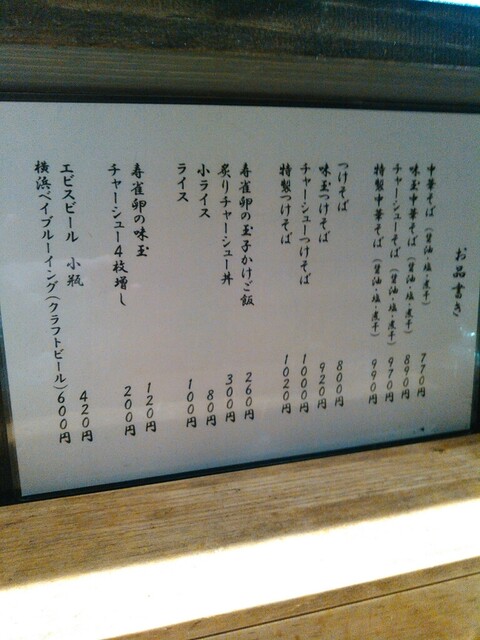 お品書き
中華そば（醤油・塩・煮干） 770円
味玉中華そば（醤油・塩・煮干） 890円
チャーシューそば（醤油・塩・煮干） 970円
特製中華そば（醤油・塩・煮干） 990円
つけそば 800円
味玉つけそば 920円
チャーシューつけそば 1000円
特製つけそば 1020円
寿雀卵の玉子かけご飯 260円
炙りチャーシュー丼 300円
小ライス 80円
ライス 100円
寿雀卵の味玉 120円
チャーシュー4枚増し 200円
エビスビール 小瓶 420円
横浜ベイブルーイング（クラフトビール） 600円